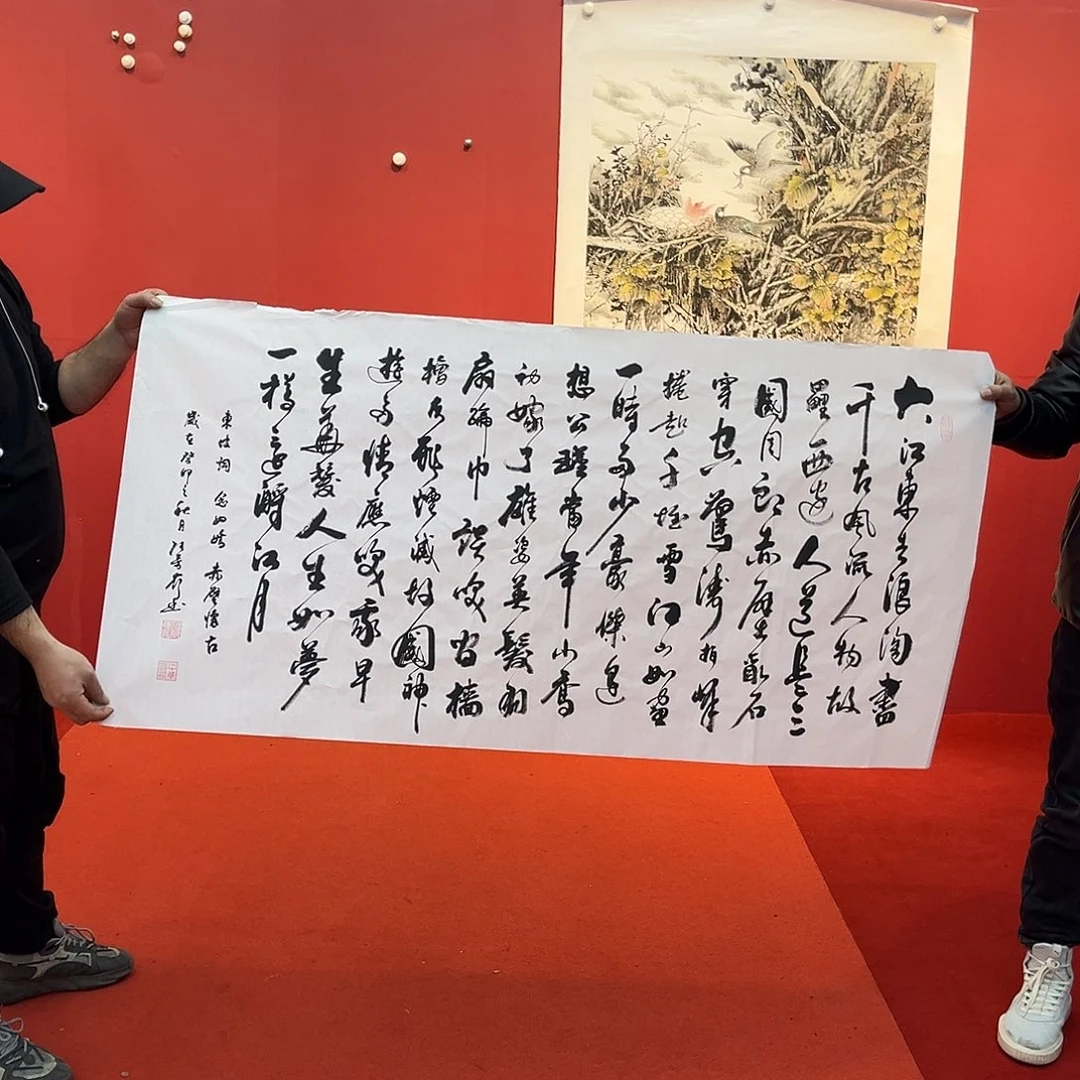 大江東去浪淘盡
千古風流人物故
壘西邊人道是三
國周郎赤壁亂石
穿空驚濤拍岸
捲起千堆雪江山如畫
一時多少豪傑遙
想公瑾當年小喬
初嫁了雄姿英髮羽
扇綸巾談笑間檣
櫓灰飛煙滅故國神
遊多情應笑我早
生華髮人生如夢
一樽還酹江月
東坡詞 念奴嬌 赤壁懷古
歲在癸卯之秋月